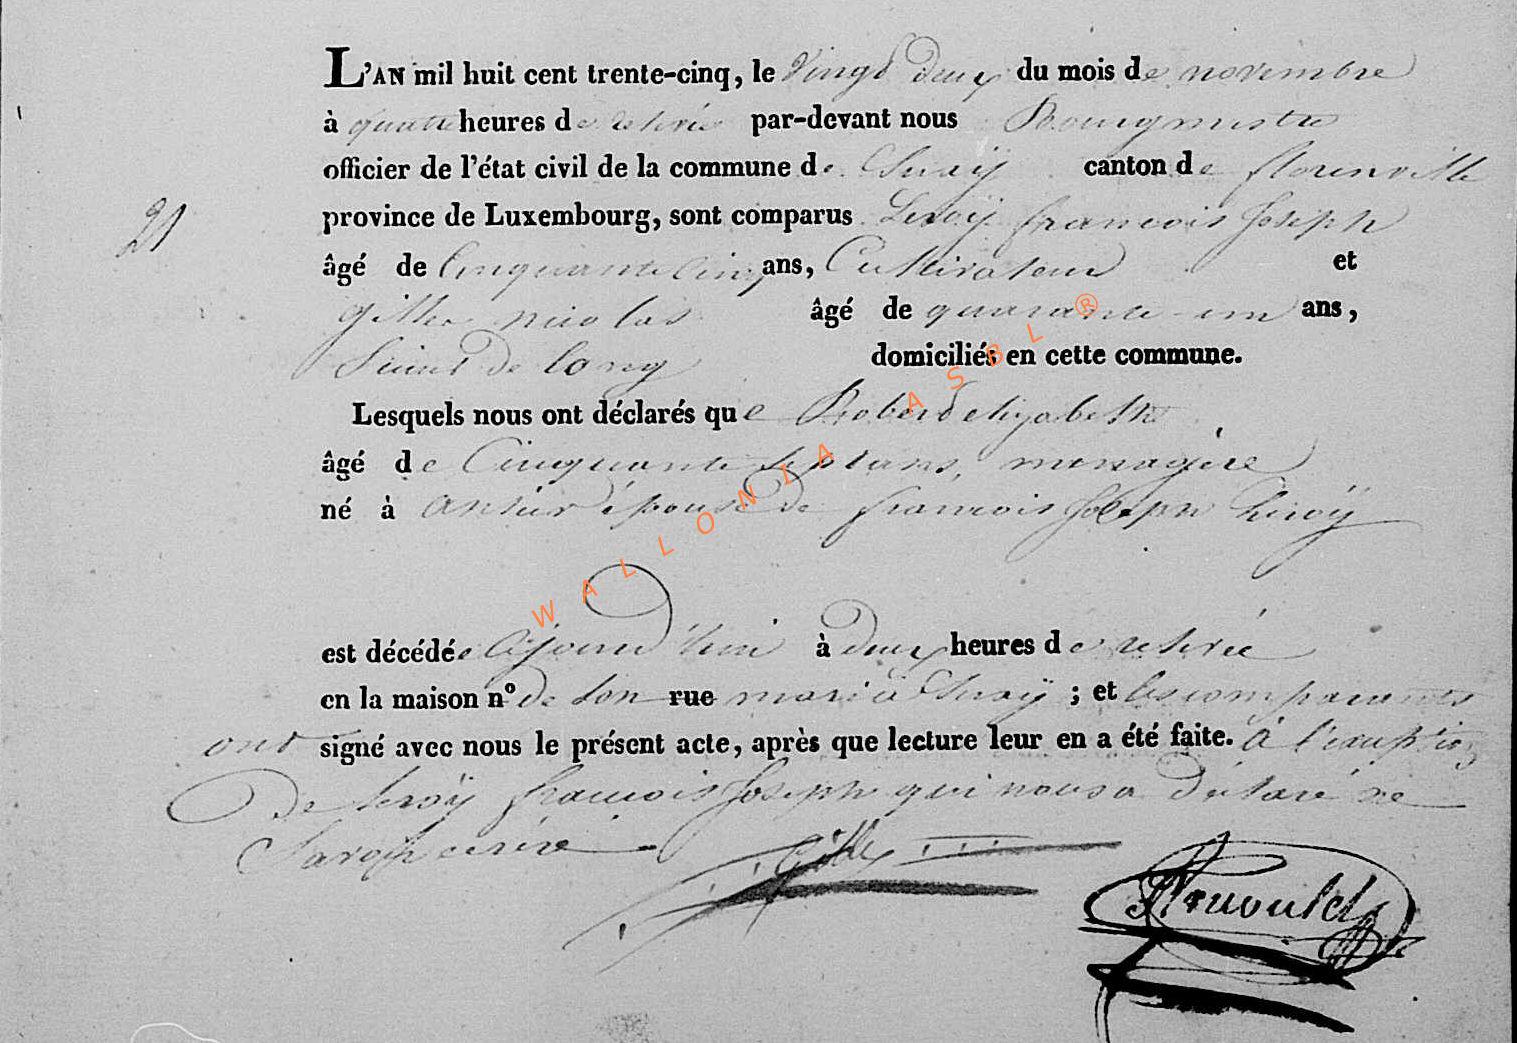 L'AN mil huit cent trente-cinq, le vingt deux du mois de novembre
à quatre heures de relevée par-devant nous Bourgmestre
officier de l'état civil de la commune de canton de florenville
21
province de Luxembourg, sont comparus Leroÿ francois Joseph
âgé de Cinquante Cinq ans, Cultivateur et
gilles nicolas âgé de quarante-un ans,
domiciliés en cette commune.
Lesquels nous ont déclarés que Roberd elizabeth
âgé de Cinquante sept ans, menagère
né à épouse de francois Joseph Leroÿ
est décédée à deux heures de relevée
en la maison nº de son rue mari à ; et les comparants
ont signé avec nous le présent acte, après que lecture leur en a été faite. à l'exception
de leroÿ francois Joseph qui nous a déclaré ne
Savoir ecrire
Gilles
WALLONIA ASBL ®